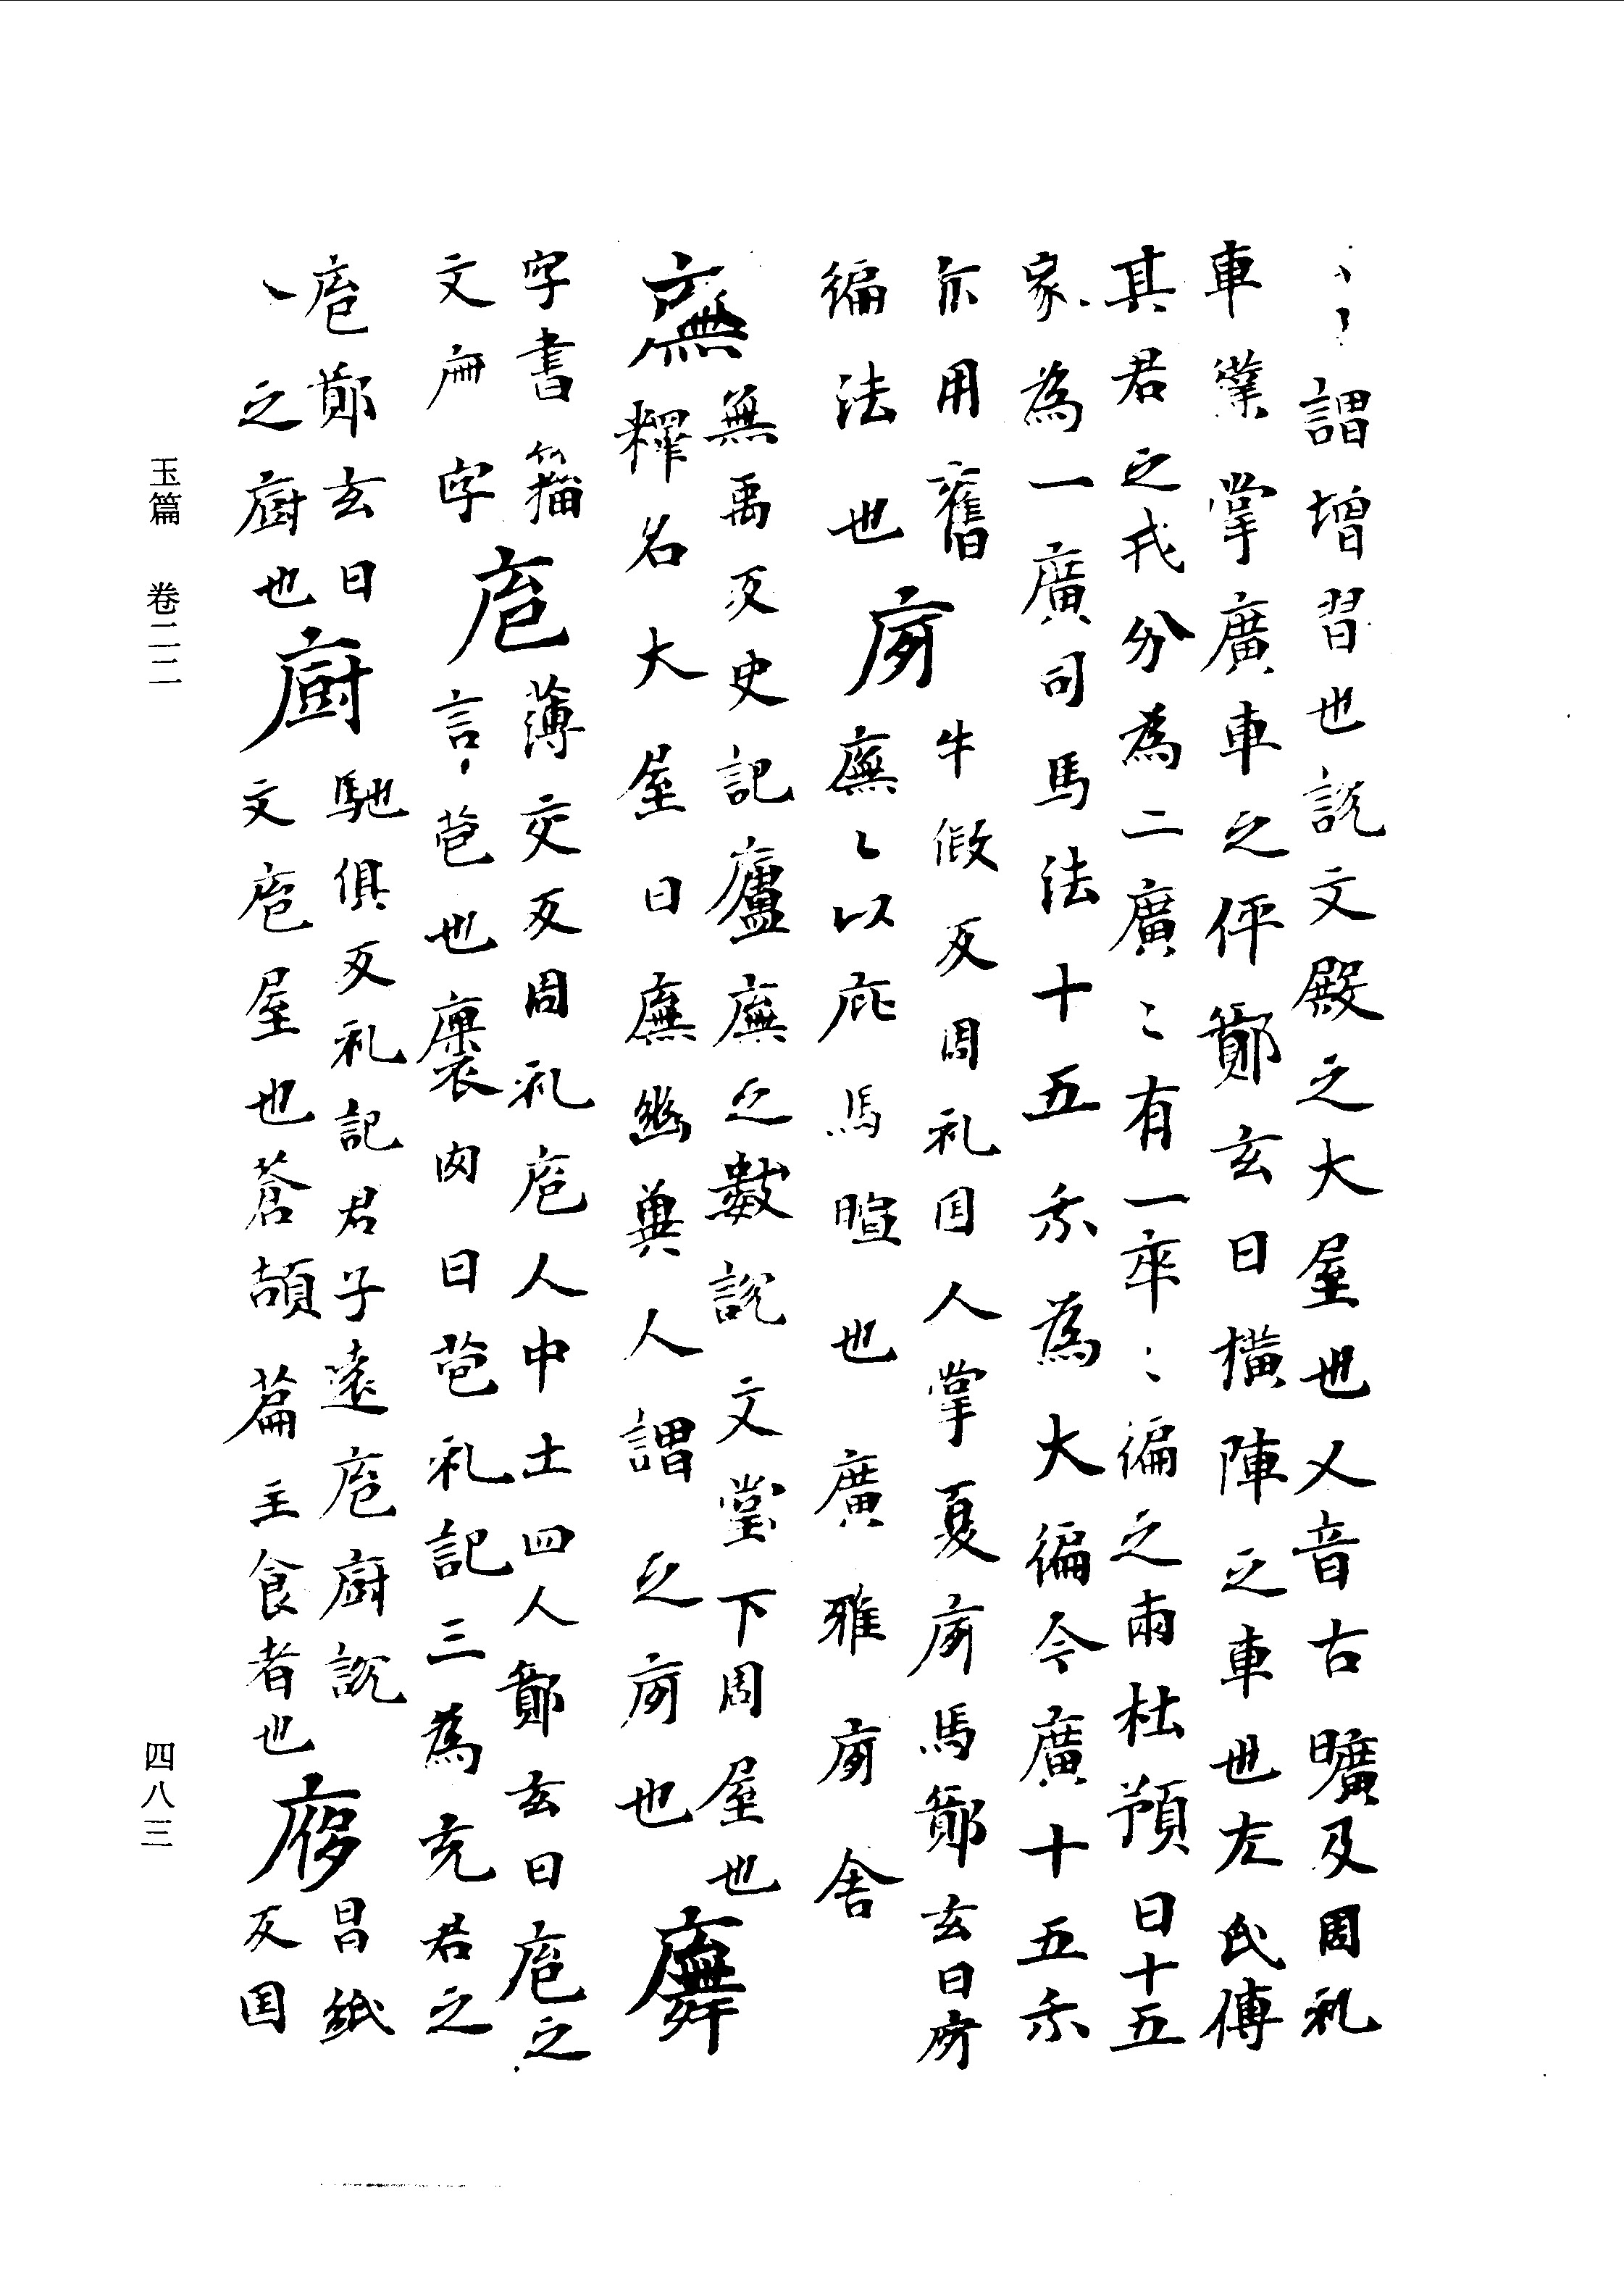 〻〻謂增習也說文殿之大屋也又音古曠及周礼
車業掌廣車之伻鄭玄曰横陣之車也左氏傳
其君之戎分為二廣〻有一卒〻偏之兩杜預曰十五
家為一廣司馬法十五乘為大偏今廣十五乘
亦用舊
偏法也
庌
牛假反周礼圉人掌夏庌馬鄭玄曰庌
廡〻以庇馬暄也廣雅庌舍
廡
無禹反史記廬廡之數說文堂下周屋也
釋名大屋曰廡幽冀人謂之庌也
字書籀
文廡字
庖
薄交反周礼庖人中士四人鄭玄曰庖之
言苞也裹肉曰苞礼記三為充君之
庖鄭玄曰
〻之廚也
廚
馳俱反礼記君子遠庖廚說
文庖屋也蒼頡篇主食者也
廖
昌紙
反国
玉篇 卷二二
四八三